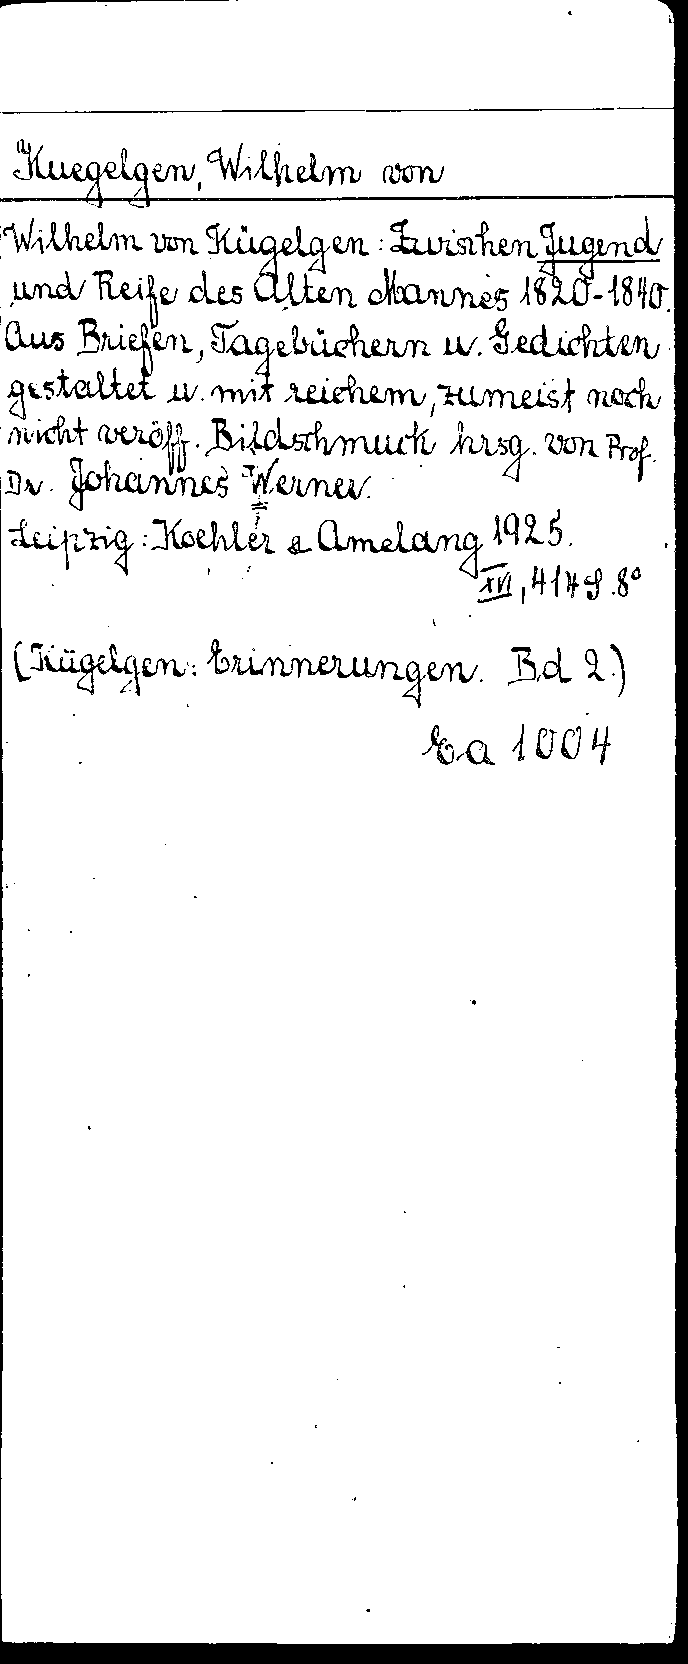 Kuegelgen, Wilhelm von
Wilhelm von Kügelgen: Zwischen Jugend
und Reife des Alten Mannes 1820-1840.
Aus Briefen, Tagebüchern u. Gedichten
gestaltet u. mit reichem, zumeist noch
nicht veröff. Bildschmuck hrsg. von Prof.
Dr. Johannes Werner.
Leipzig: Koehler & Amelang 1925.
XVI, 414 S. 8°
(Kügelgen: Erinnerungen. Bd 2.)
Ea 1004